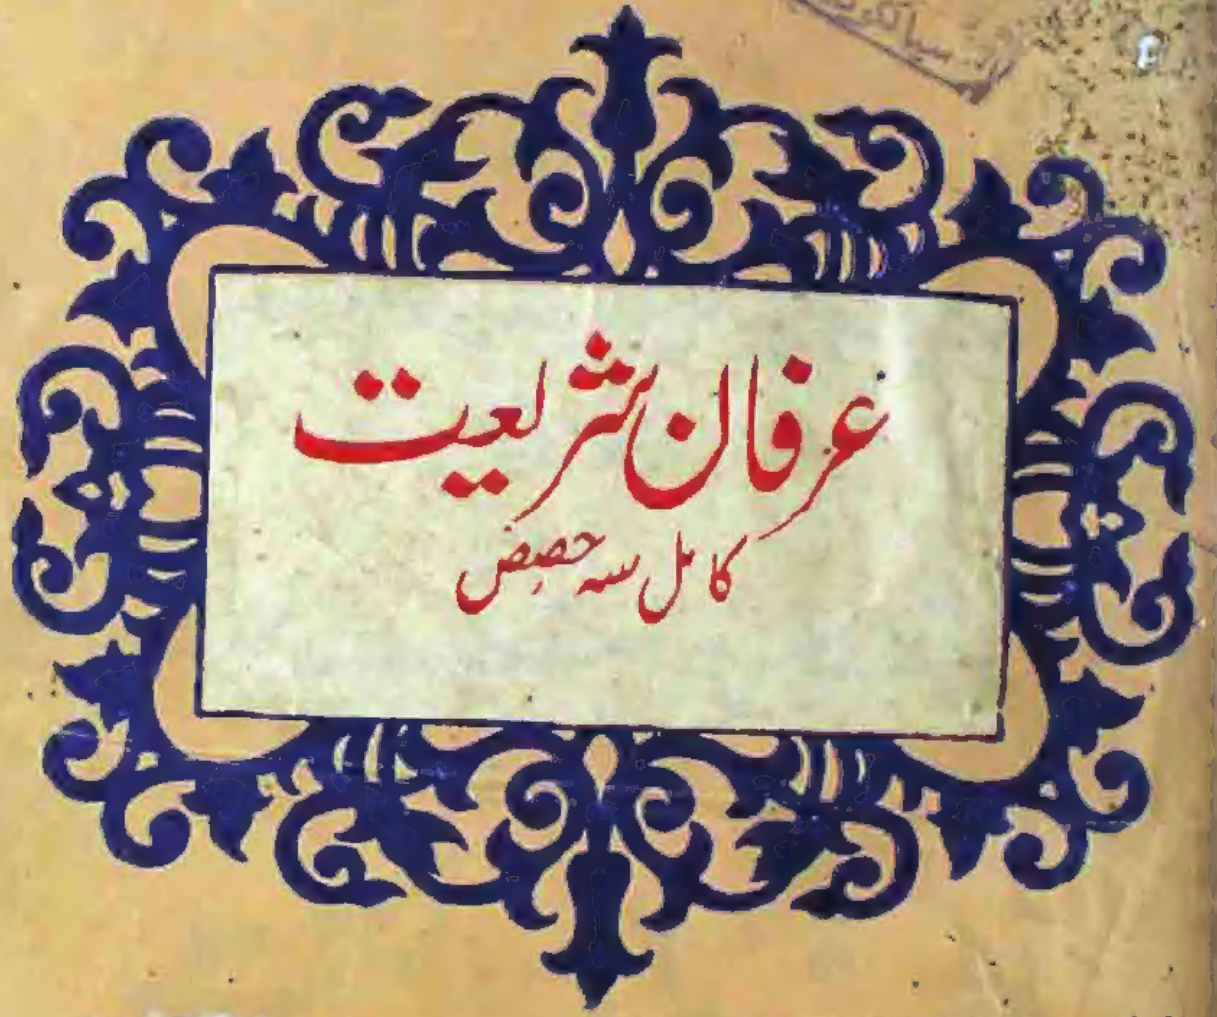 عرفان شریعت
کامل سہ حصص